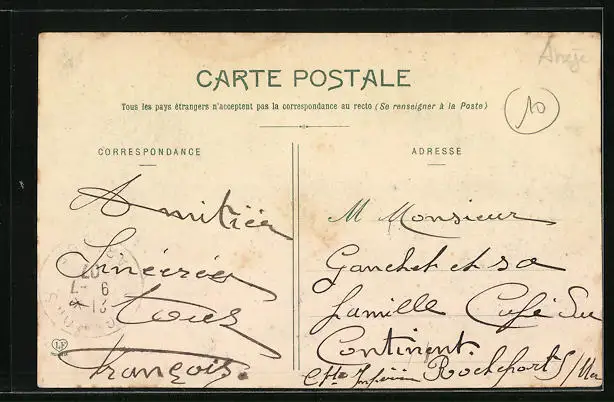 Ariège
CARTE POSTALE
Tous les pays étrangers n'acceptent pas la correspondance au recto (Se renseigner à la Poste)
10
CORRESPONDANCE
Amitiés
Sincères
tous
François
ADRESSE
M Monsieur
Ganchet et sa
famille Café Du
Continent.
Rochefort S/Mer